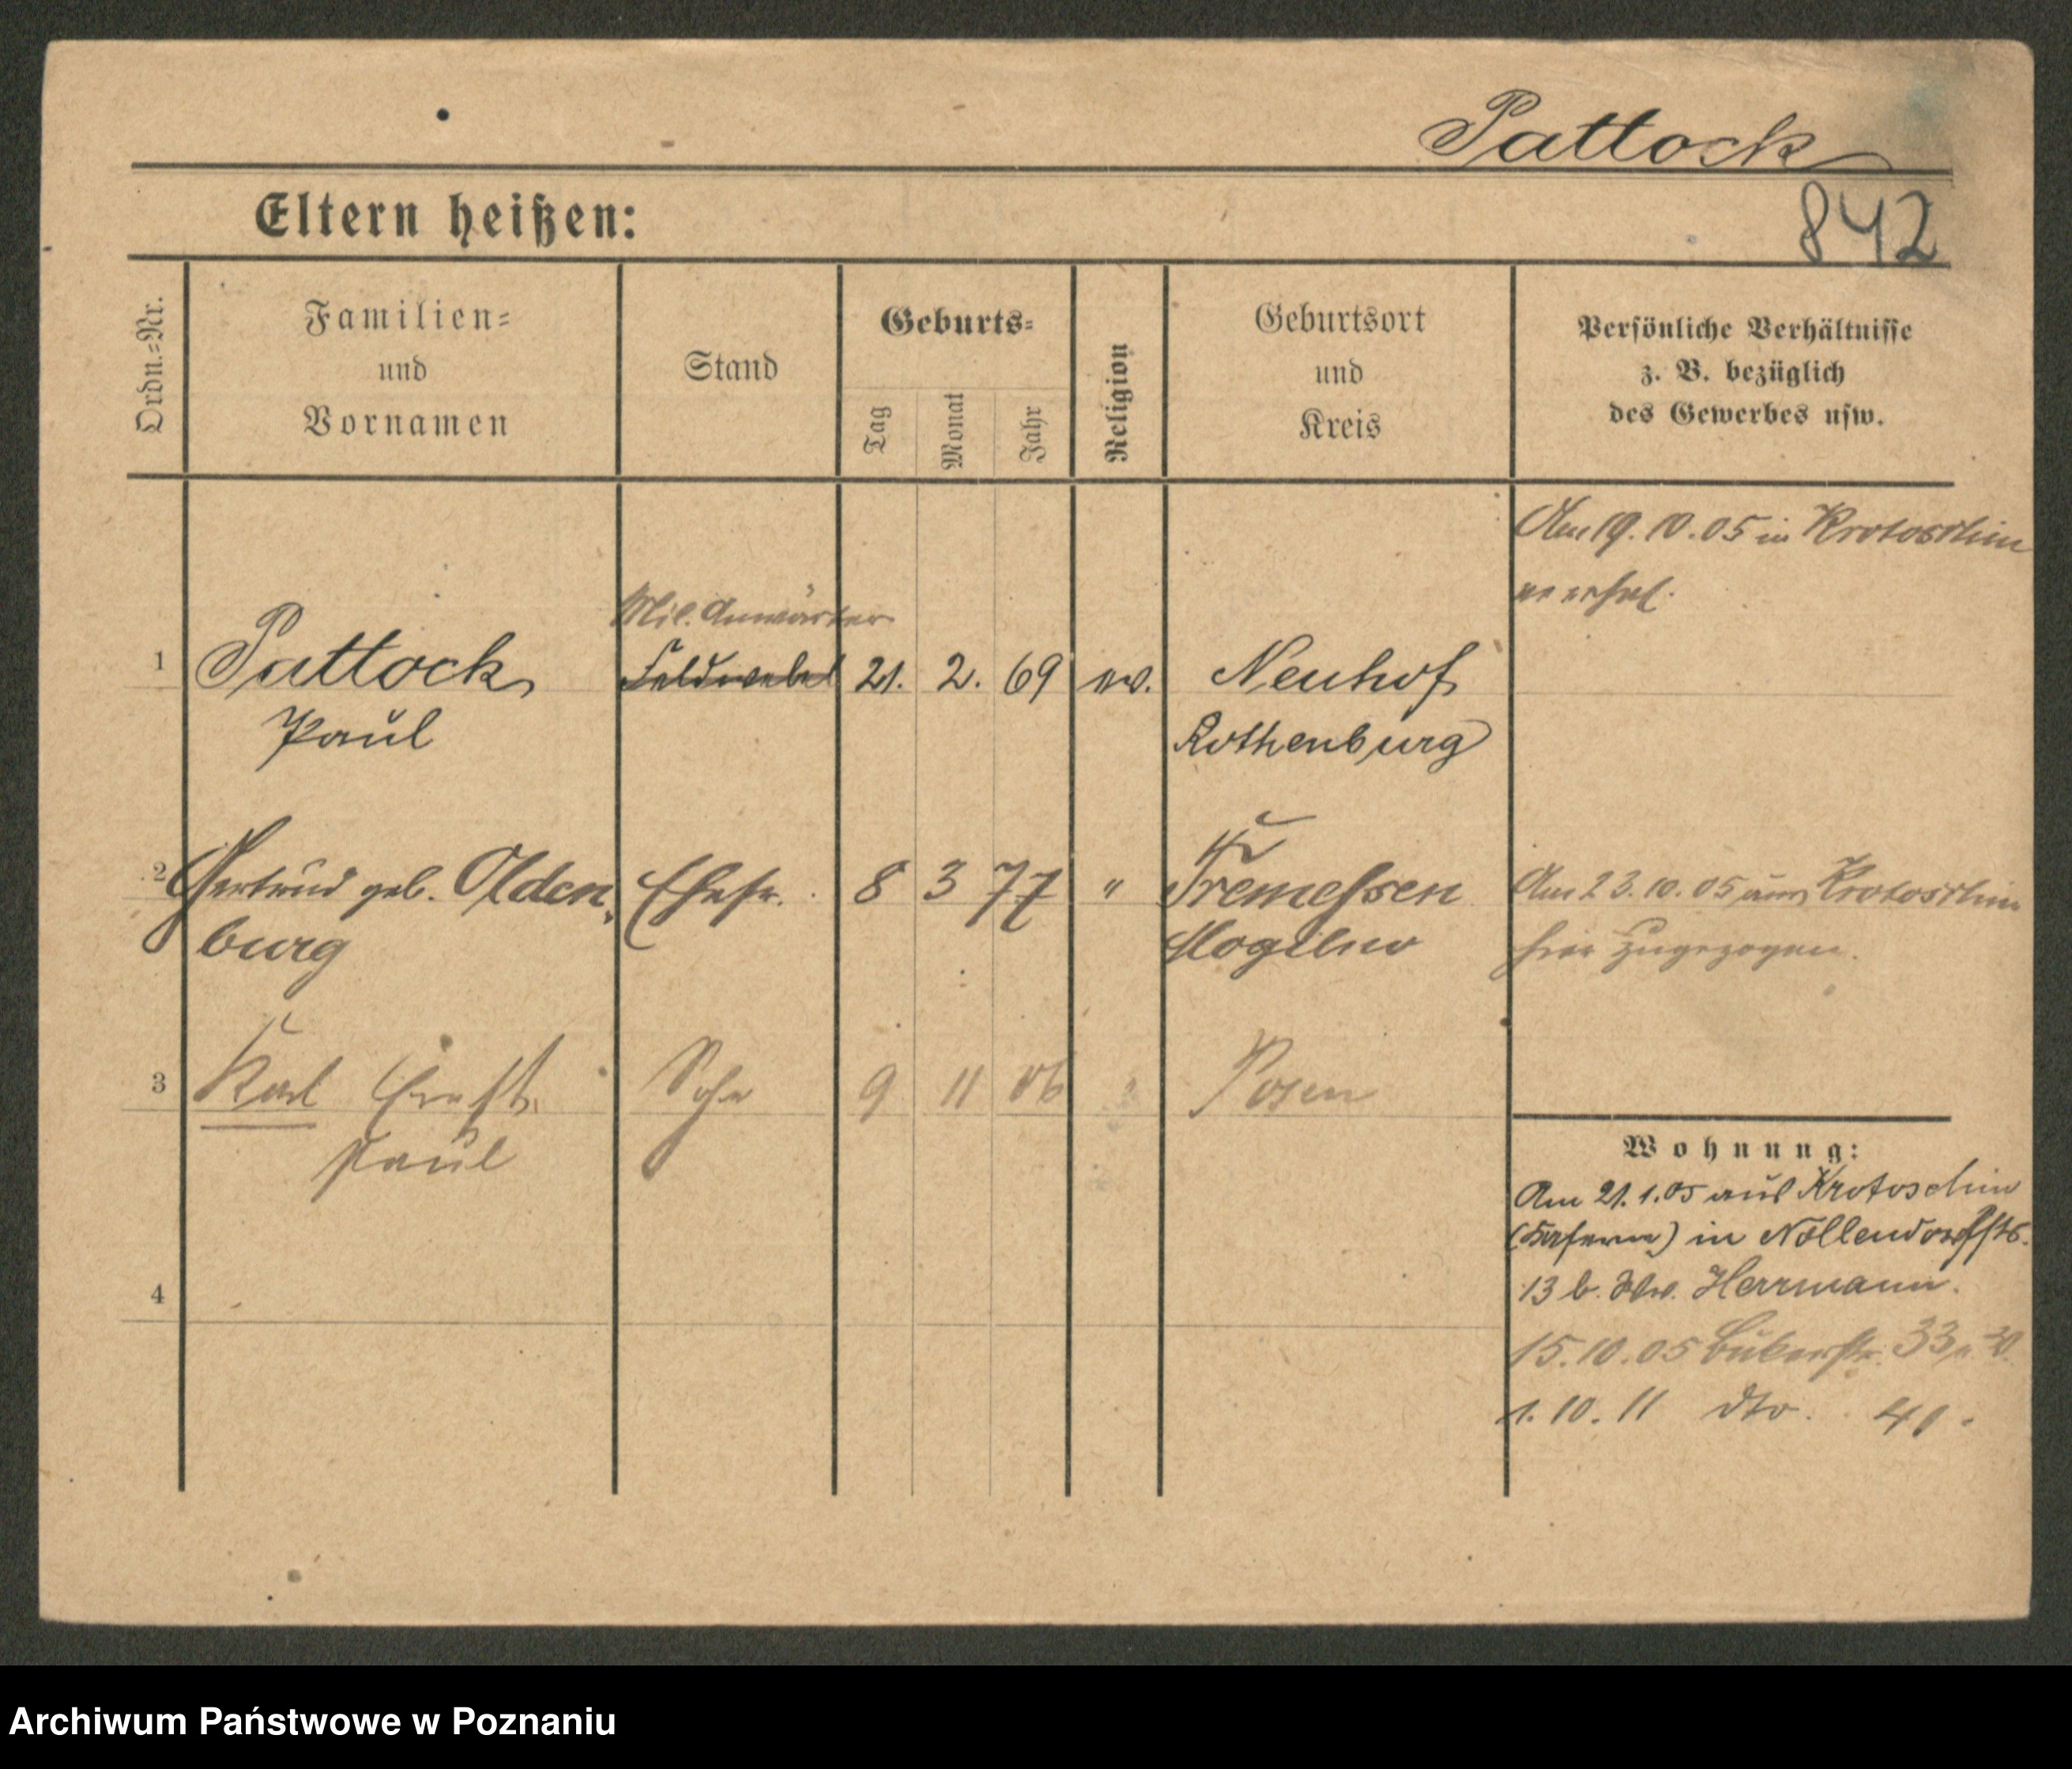 Pattock
Eltern heißen:
842
Ordn.=Nr.
Familien=
und
Vornamen
Stand
Geburts=
Tag
Monat
Jahr
Religion
Geburtsort
und
Kreis
Persönliche Verhältnisse
z. B. bezüglich
des Gewerbes usw.
Am 19.10.05 in Krotoschin
verehel.
Mil. Anwärter
1 Pattock Feldwebel 21. 2. 69 ev. Neuhof
Paul Rothenburg
2 Gertrud geb. Olden- Ehefr. 8 3 77 " Tremessen Am 23.10.05 aus Krotoschin
burg Mogilno hier zugezogen.
3 Karl Ernst Sohn 9 11 06 " Posen
Paul
Wohnung:
Am 21.1.05 aus Krotoschin
(Kaserne) in Nollendorffstr.
13 b. Ww. Herrmann.
4
15.10.05 Bukerstr. 33
1.10.11 dto.
Archiwum Państwowe w Poznaniu